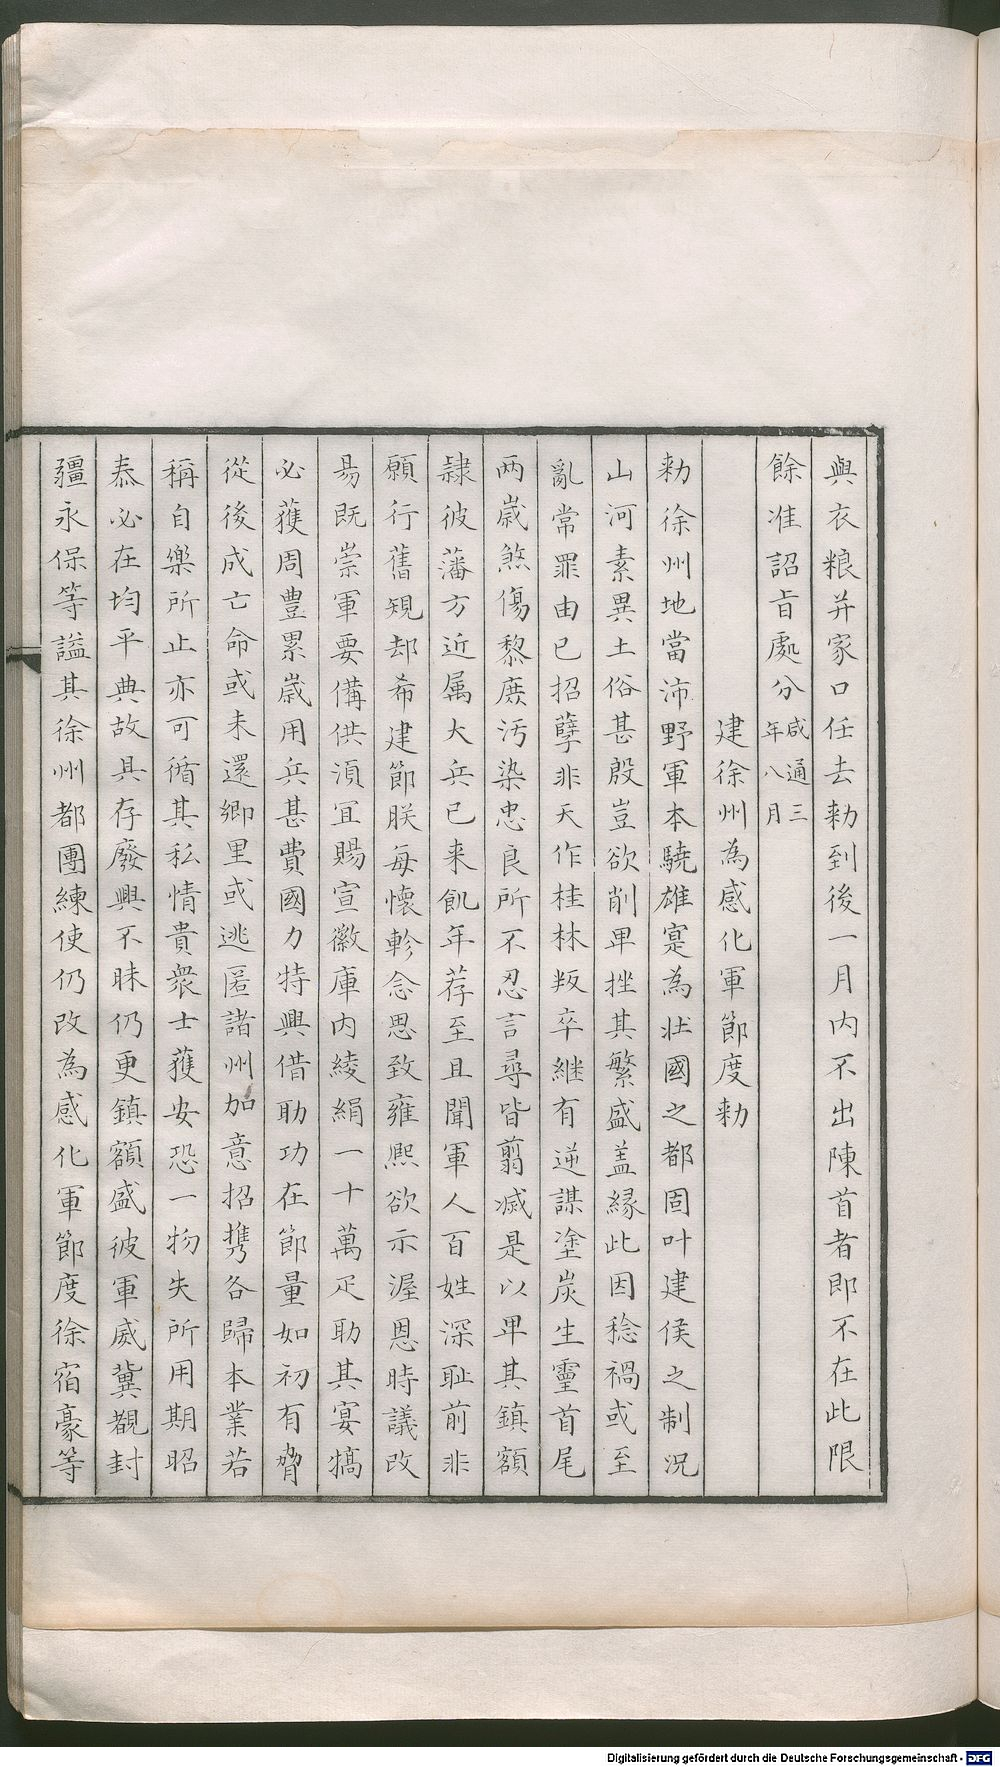 與衣粮并家口任去勅到後一月内不出陳首者即不在此限
餘准詔旨處分咸通三年八月
建徐州為感化軍節度勅
勅徐州地當沛野軍本驍雄寔為壯國之都固叶建侯之制況
山河素異土俗甚殷豈欲削卑挫其繁盛盖縁此因稔禍或至
亂常罪由已招孽非天作桂林叛卒継有逆謀塗炭生靈首尾
两歳煞傷黎庶汚染忠良所不忍言尋皆翦滅是以卑其鎮額
隷彼藩方近属大兵已来飢年荐至且聞軍人百姓深耻前非
願行舊規却希建節朕每懷軫念思致雍熙欲示渥恩時議改
昜既崇軍要備供湏宜賜宣徽庫内綾絹一十萬疋助其宴犒
必蓰周豊累歳用兵甚費國力特興借助功在節量如初有脅
從後成亡命或未還鄉里或逃匿諸州加意招携各歸本業若
稱自樂所止亦可循其私情貴衆士獲安恐一物失所用期昭
泰必在均平典故具存廢興不昧仍更鎮額盛彼軍威冀覩封
疆永保等謐其徐州都團練使仍改為感化軍節度徐宿豪等
Digitalisierung gefördert durch die Deutsche Forschungsgemeinschaft - DFG